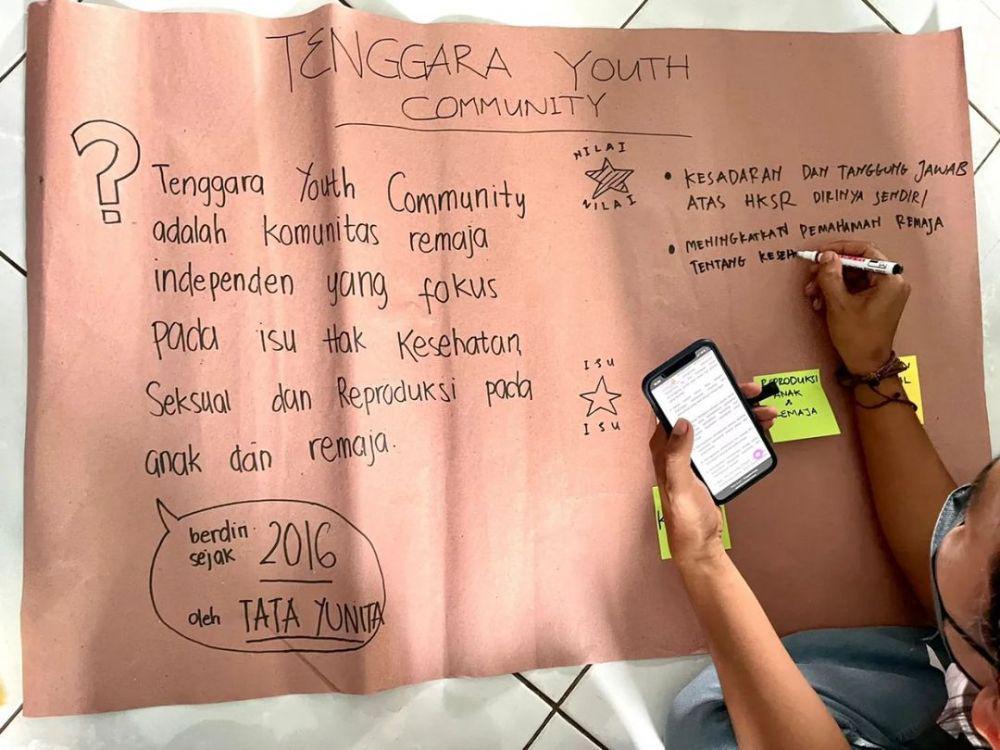 TENGGARA YOUTH
COMMUNITY
?
Tenggara Youth Community
adalah komunitas remaja
independen yang fokus
pada isu Hak Kesehatan
Seksual dan Reproduksi pada
anak dan remaja.
berdiri
sejak 2016
oleh TATA YUNITA
NILAI
NILAI
• KESADARAN DAN TANGGUNG JAWAB
ATAS HKSR DIRINYA SENDIRI
• MENINGKATKAN PEMAHAMAN REMAJA
TENTANG KESEH
ISU
ISU
REPRODUKSI
ANAK
&
REMAJA